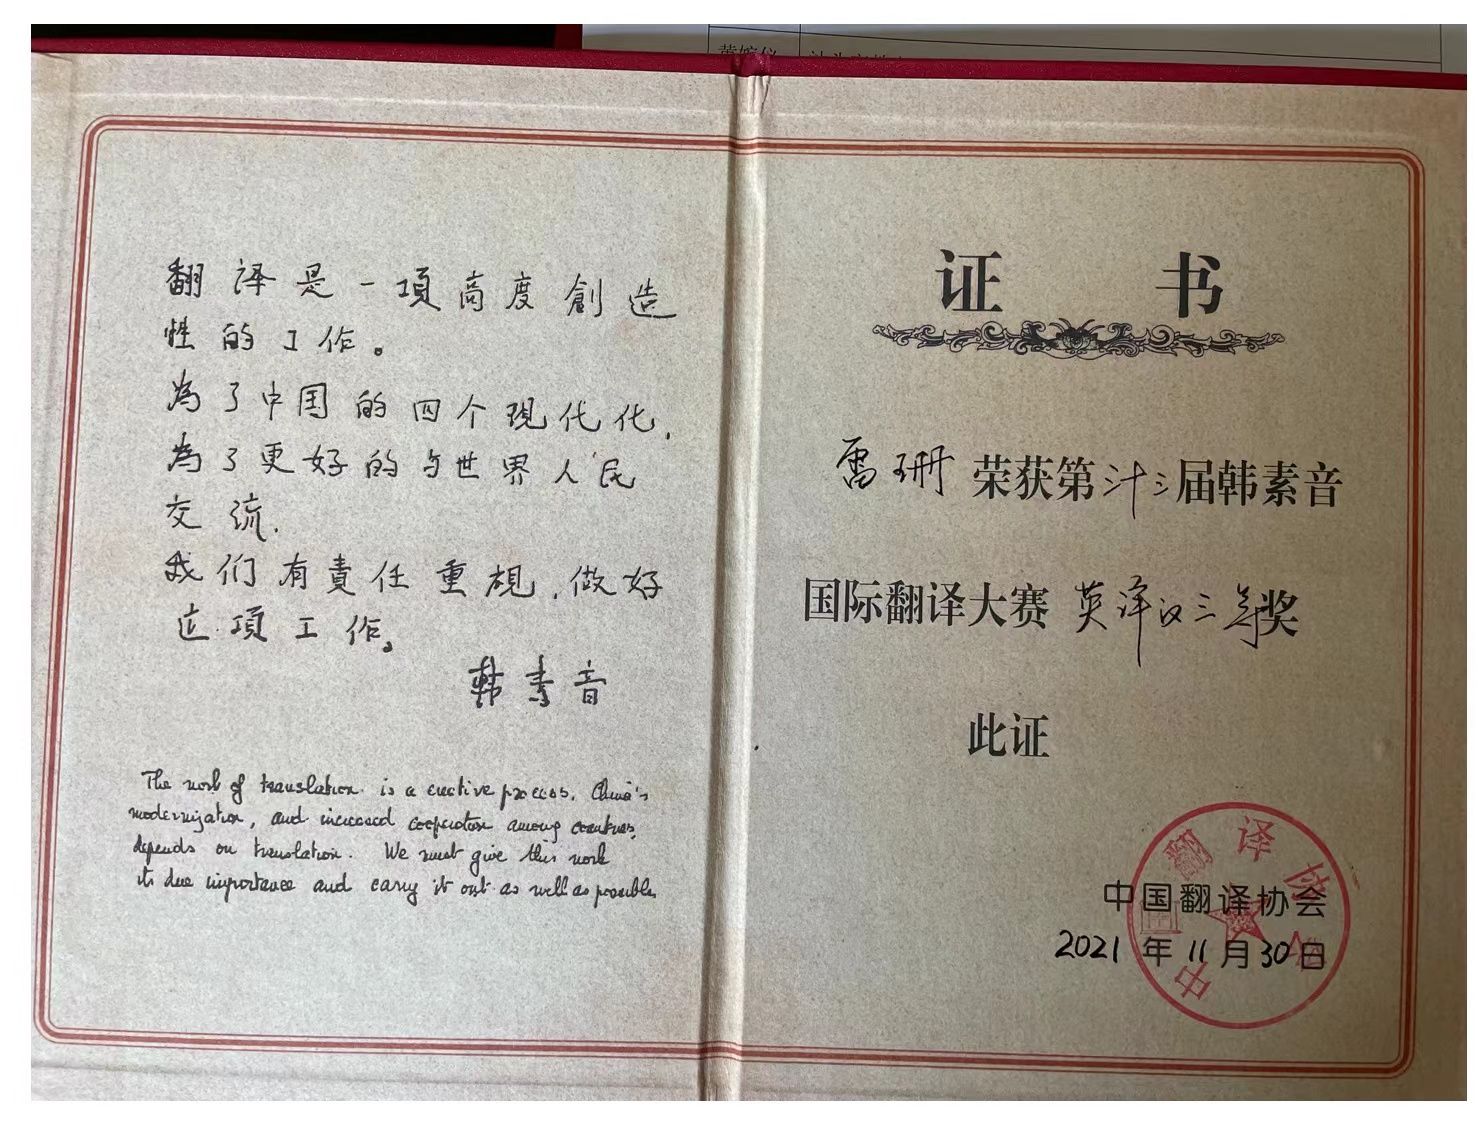 翻译是一項高度創造
性的工作。
為了中国的四个現代化,
為了更好的与世界人民
交流.
我们有責任重視,做好
这項工作。
韩素音
The work of translation is a creative process. China's
modernization, and increased cooperation among countries,
depends on translation. We must give this work
its due importance and carry it out as well as possible
证 书
雷珊 荣获第卅三届韩素音
国际翻译大赛 英译汉三等奖
此证
中国翻译协会
2021 年 11 月 30 日
中国翻译协会